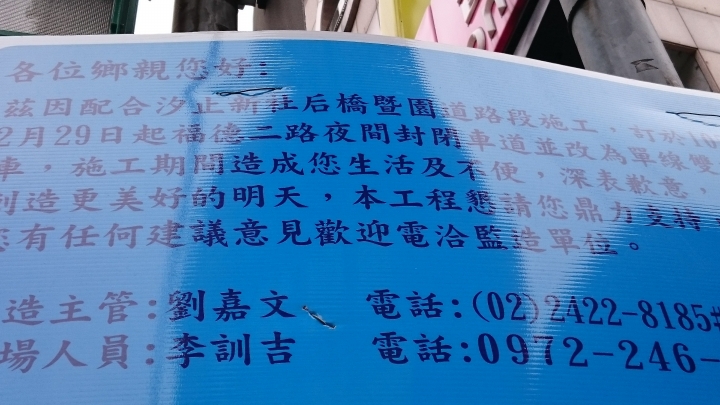 各位鄉親您好:
茲因配合汐止新社后橋暨園道路段施工，訂於10
2月29日起福德二路夜間封閉車道並改為單線雙
車，施工期間造成您生活及不便，深表歉意，
創造更美好的明天，本工程懇請您鼎力支持
您有任何建議意見歡迎電洽監造單位。
造主管:劉嘉文 電話:(02)2422-8185#
場人員:李訓吉 電話:0972-246-